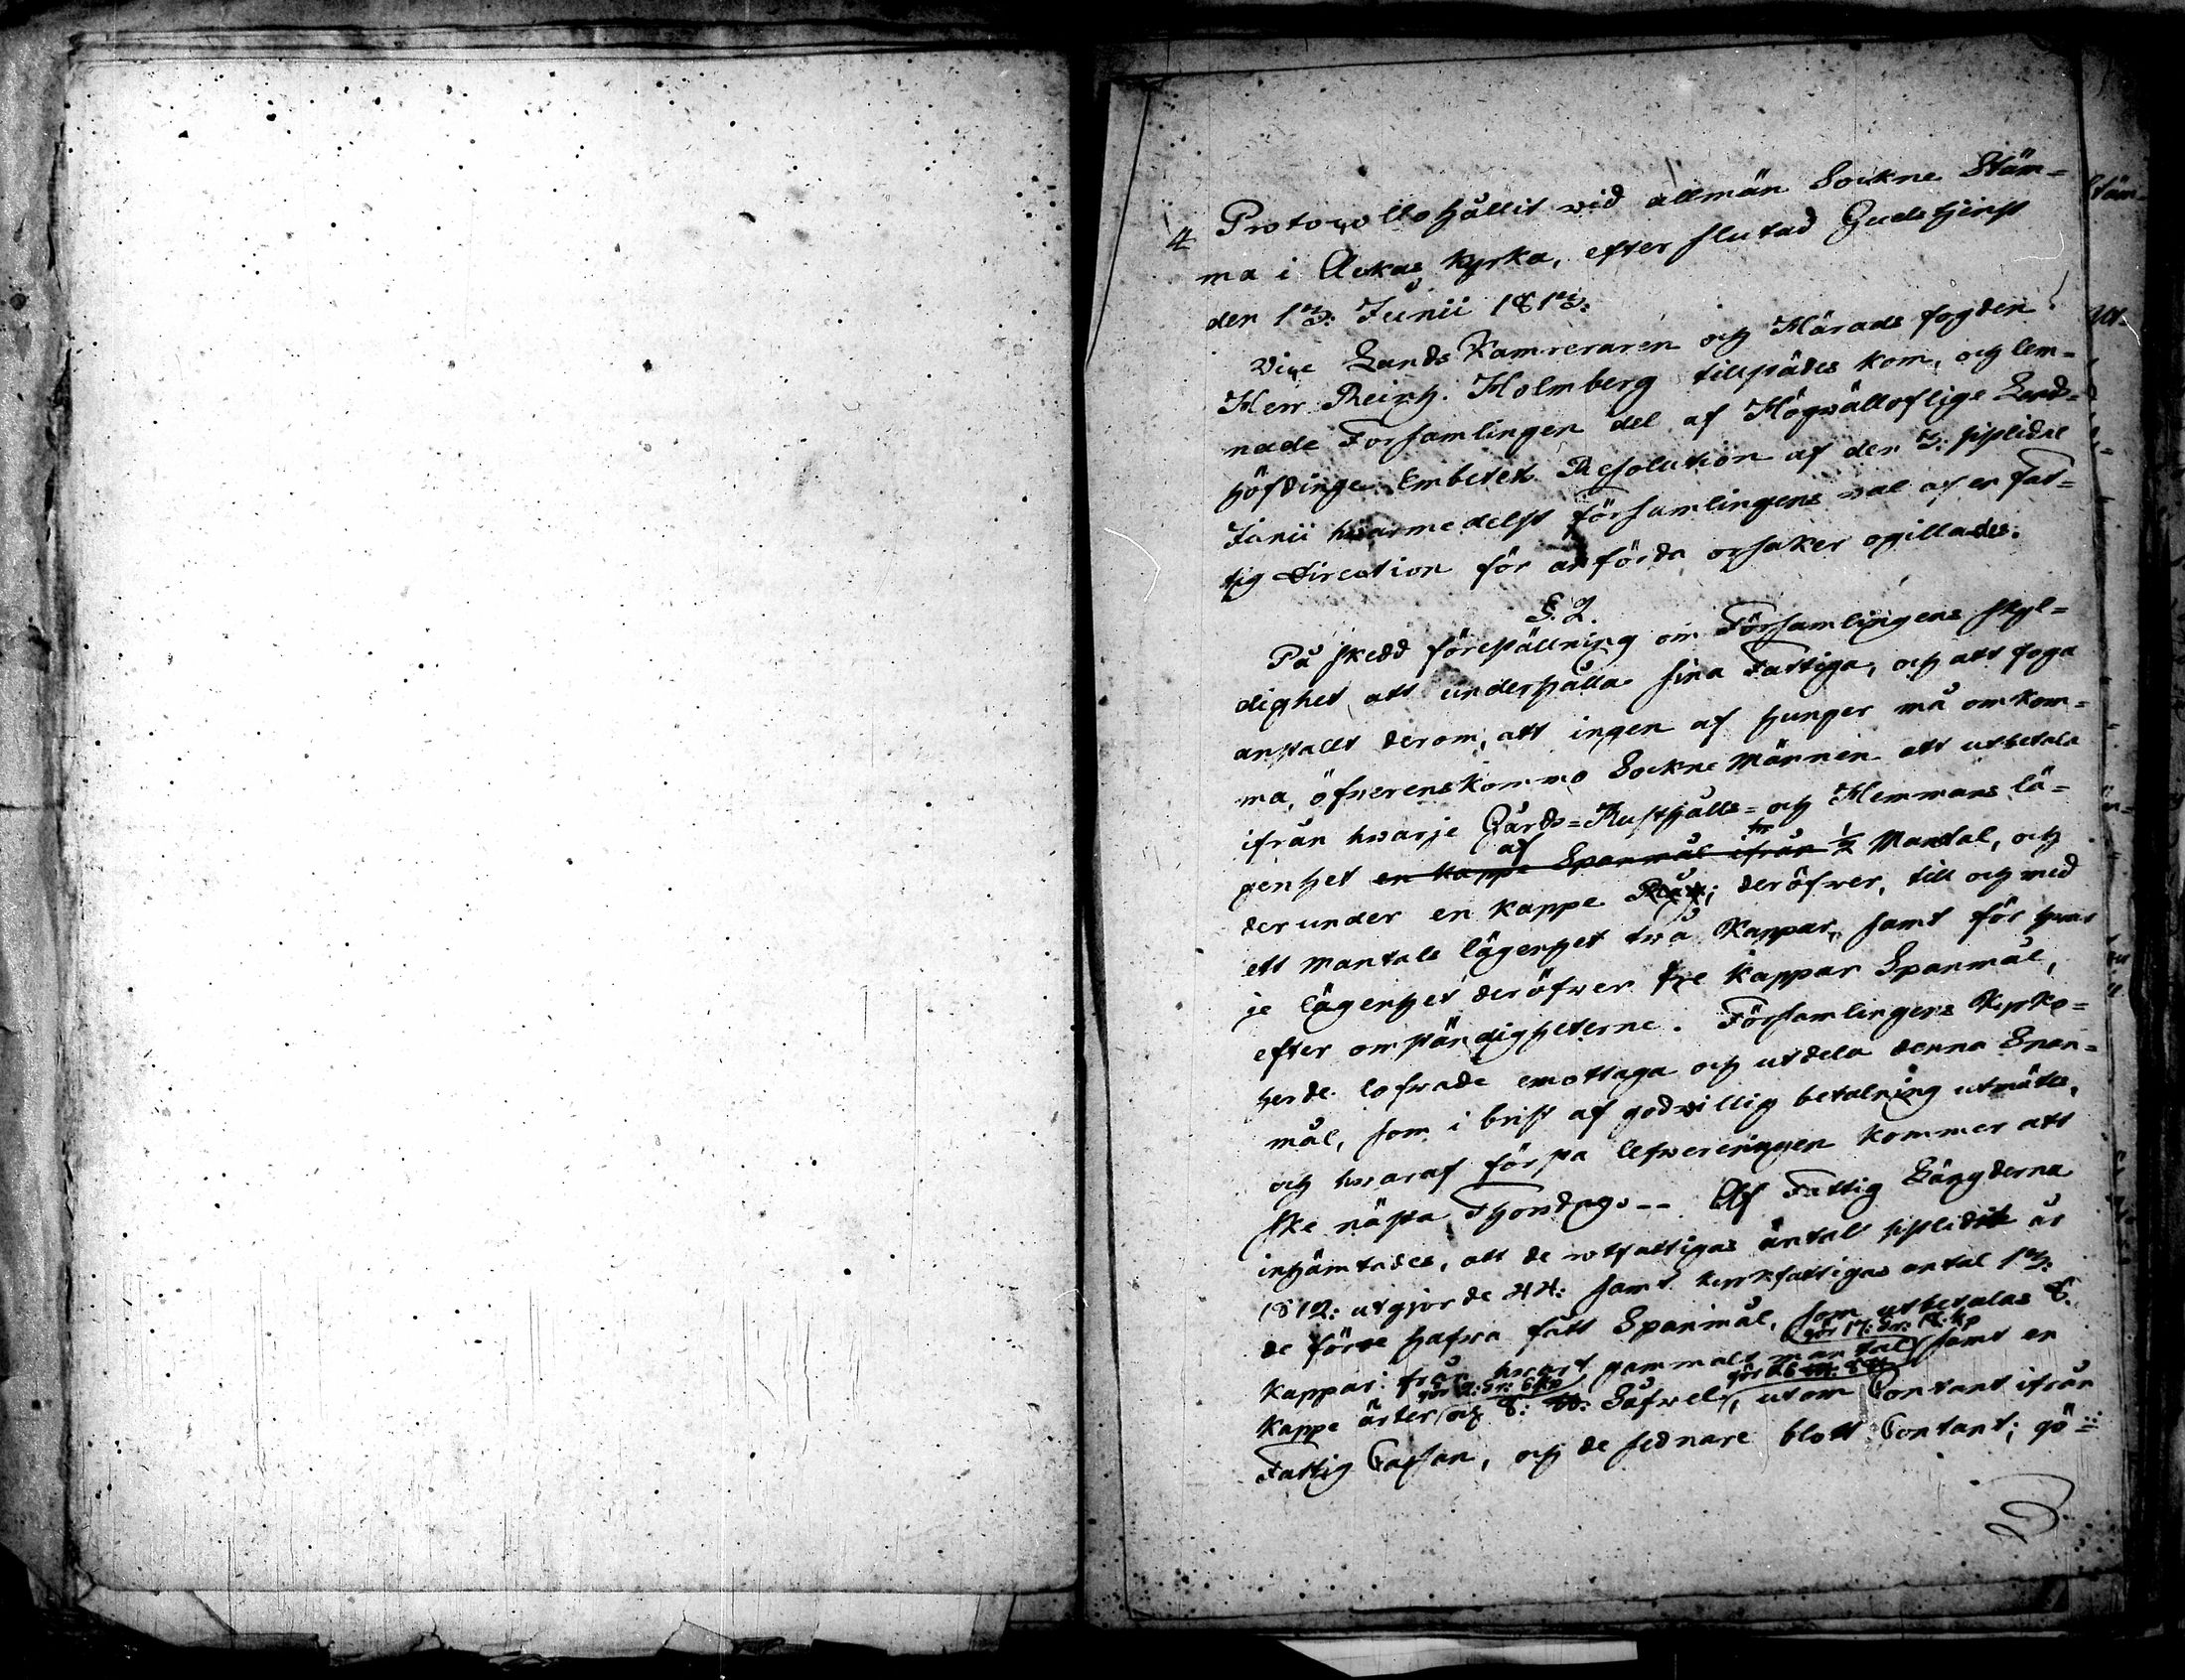 Protocoll hållit vid allmän Sockne Stäm=
ma i Ackas kyrka, efter slutad Gudstjenst
den 13: Junii 1813:
Vice Lands Kamreraren och Härads fogden
Herr Reinh. Holmberg tillstädes kom, och lem=
nade Församlingen del af Högvällofliga Lands=
höfdinge Embetets Resolution af den 3: sistlidne
Junii hvarmedelst församlingens val af en Fat=
tig Direction för anförda orsaker ogillades.
§. 2.
På skedd föreställning om Församlingens skyl=
dighet att underhålla sina Fattiga, och att foga
anstallt derom, att ingen af hunger må omkom=
ma, öfverenskommo Sockne Männen att utbetala
ifrån hvarje Gårds= Rusthålls= och Hemmans lä=
genhet en kappe Spanmål ifrån af 1/2 Mantal, och
derunder en kappe Råg; deröfver, till och med
ett Mantals lägenhet två Kappar, samt för hvar
je lägenhet deröfver tre kappar Spanmål,
efter omständigheterne. Församlingens Kyrko=
herde lofvade emottaga och utdela denna Span=
mål, som i brist af godvillig betalning utmätes,
och hvaraf första lefvereringen kommer att
ske nästa Thorsdag. -- Af Fattig Längderna
inhämtades, att de rotfattigas antal sistlidit år
1812: utgjorde 44: samt kyrkfattigas antal 13:
de förre hafva fått Spanmål, som utbetalas 8.
gör 17: Sr: 18: kp
kappar från hvart gammalt mantal samt en
gör 2: Sr: 6 kp
kappe ärter och 8: Sofvel, utom Contant ifrån
Fattig Cassan, och de sednare blott Contant; gö=